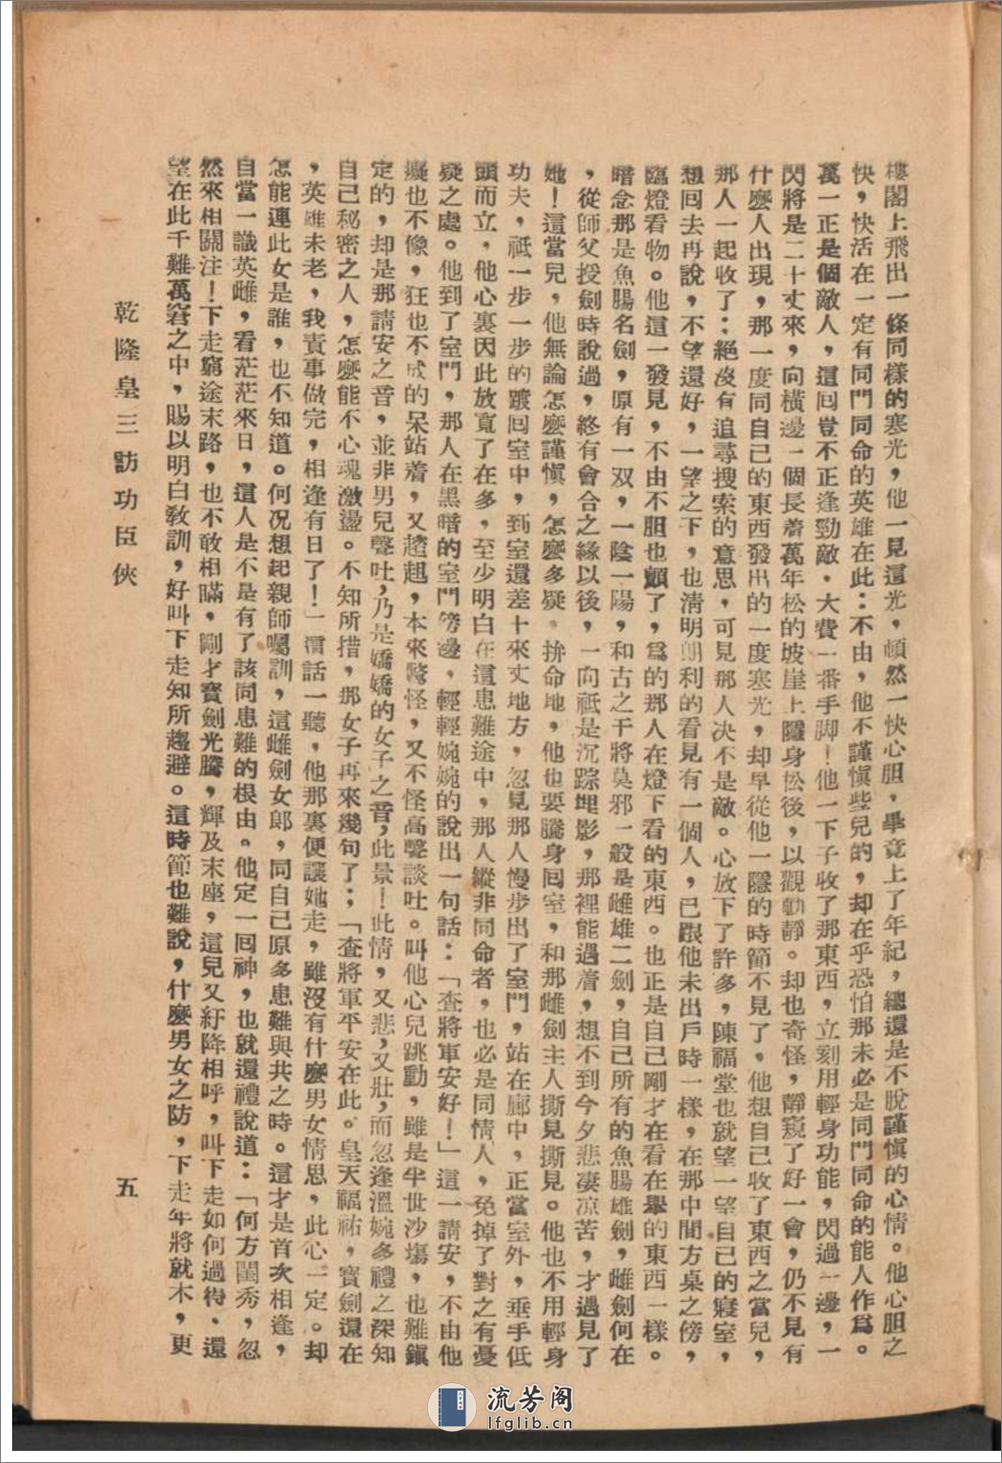 樓閣上飛出一條同樣的寒光，他一見這光，頓然一快心胆，畢竟上了年紀，總還是不脫謹慎的心情。他心胆之
快，快活在一定有同門同命的英雄在此：不由，他不謹愼些兒的，却在乎恐怕那未必是同門同命的能人作爲。
萬一正是個敵人，這囘豈不正逢勁敵，大費一番手脚！他一下子收了那東西，立刻用輕身功能，閃過一邊，一
閃將是二十丈來，向橫邊一個長着萬年松的坡崖上隱身松後，以觀動靜。却也奇怪，靜窺了好一會，仍不見有
什麼人出現，那一度同自己的東西發出的一度寒光，却早從他一隱的時節不見了，他想自己收了東西之當兒，
那人一起收了：絕沒有追尋搜索的意思，可見那人决不是敵。心放下了許多，陳福堂也就望一望自己的寢室，
想囘去再說，不望還好，一望之下，也淸明朗利的看見有一個人，已跟他未出戶時一樣，在那中間方桌之傍，
臨燈看物。他這一發見，不由不胆也顫了，爲的那人在燈下看的東西。也正是自己剛才在看在舉的東西一樣。
暗念那是魚腸名劍，原有一双，一陰一陽，和古之干將莫邪一般是雌雄二劍，自己所有的魚腸雄劍，雌劍何在
，從師父授劍時說過，終有會合之緣以後，一向祇是沉踪埋影，那裡能遇着，想不到今夕悲凄凉苦，才遇見了
她！這當兒，他無論怎麼謹愼，怎麼多疑，拚命地，他也要騰身囘室，和那雌劍主人撕見撕見。他也不用輕身
功夫，祇一步一步的踱囘室中，到室還差十來丈地方，忽見那人慢步出了室門，站在廊中，正當室外，垂手低
頭而立，他心裏因此放寬了在多，至少明白在這患難途中，那人縱非同命者，也必是同情人，免掉了對之有憂
疑之處。他到了室門，那人在黑暗的室門傍邊，輕輕婉婉的說出一句話：「查將軍安好！」這一請安，不由他
癡也不像，狂也不成的呆站着，又趦趄，本來驚怪，又不怪高聲談吐。叫他心兒跳動，雖是半世沙塲，也難鎭
定的，却是那請安之音，並非男兒聲吐，乃是嬌嬌的女子之音，此景！此情，又悲，又壯，而忽逢溫婉多禮之深知
自己秘密之人，怎麼能不心魂激盪。不知所措，那女子再來幾句了；「查將軍平安在此。皇天福祐，寶劍還在
，英雄未老，我責事做完，相逢有日了！」這話一聽，他那裏便讓她走，雖沒有什麼男女情思，此心一定。却
怎能連此女是誰，也不知道。何况想起親師囑訓，這雌劍女郎，同自己原多患難與共之時。這才是首次相逢，
自當一識英雌，看茫茫來日，這人是不是有了該同患難的根由。他定一囘神，也就還禮說道：「何方閨秀，忽
然來相關注！下走窮途末路，也不敢相瞞，剛才寶劍光騰，輝及末座，這兒又紆降相呼，叫下走如何過得、還
望在此千難萬窘之中，賜以明白敎訓，好叫下走知所趨避。這時節也難說，什麼男女之防，下走年將就木，更
乾隆皇三訪功臣俠
五
流芳阁
lfglib.cn